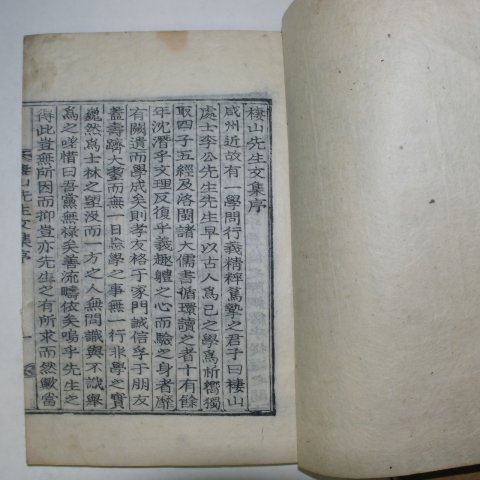 棲山先生文集序
咸州近故有一學問行義精粹篤摯之君子曰棲山
處士李公先生先生早以古人爲己之學爲祈嚮獨
取四子五經及洛閩諸大儒書循環讀之者十有餘
年沈潛乎文理反復乎義趣體之心而驗之身者靡
有闕遺而學成矣則孝友格于家門誠信孚于朋友
蓋壽躋大耋而無一日忘學之事無一行非學之實
巍然爲士林之望沒而一方之人無問識與不識擧
爲之嗟惜曰吾黨無祿矣善流疇依矣嗚乎先生之
得此豈無所因而抑豈亦先生之有所求而然歟當
棲山先生文集序 一